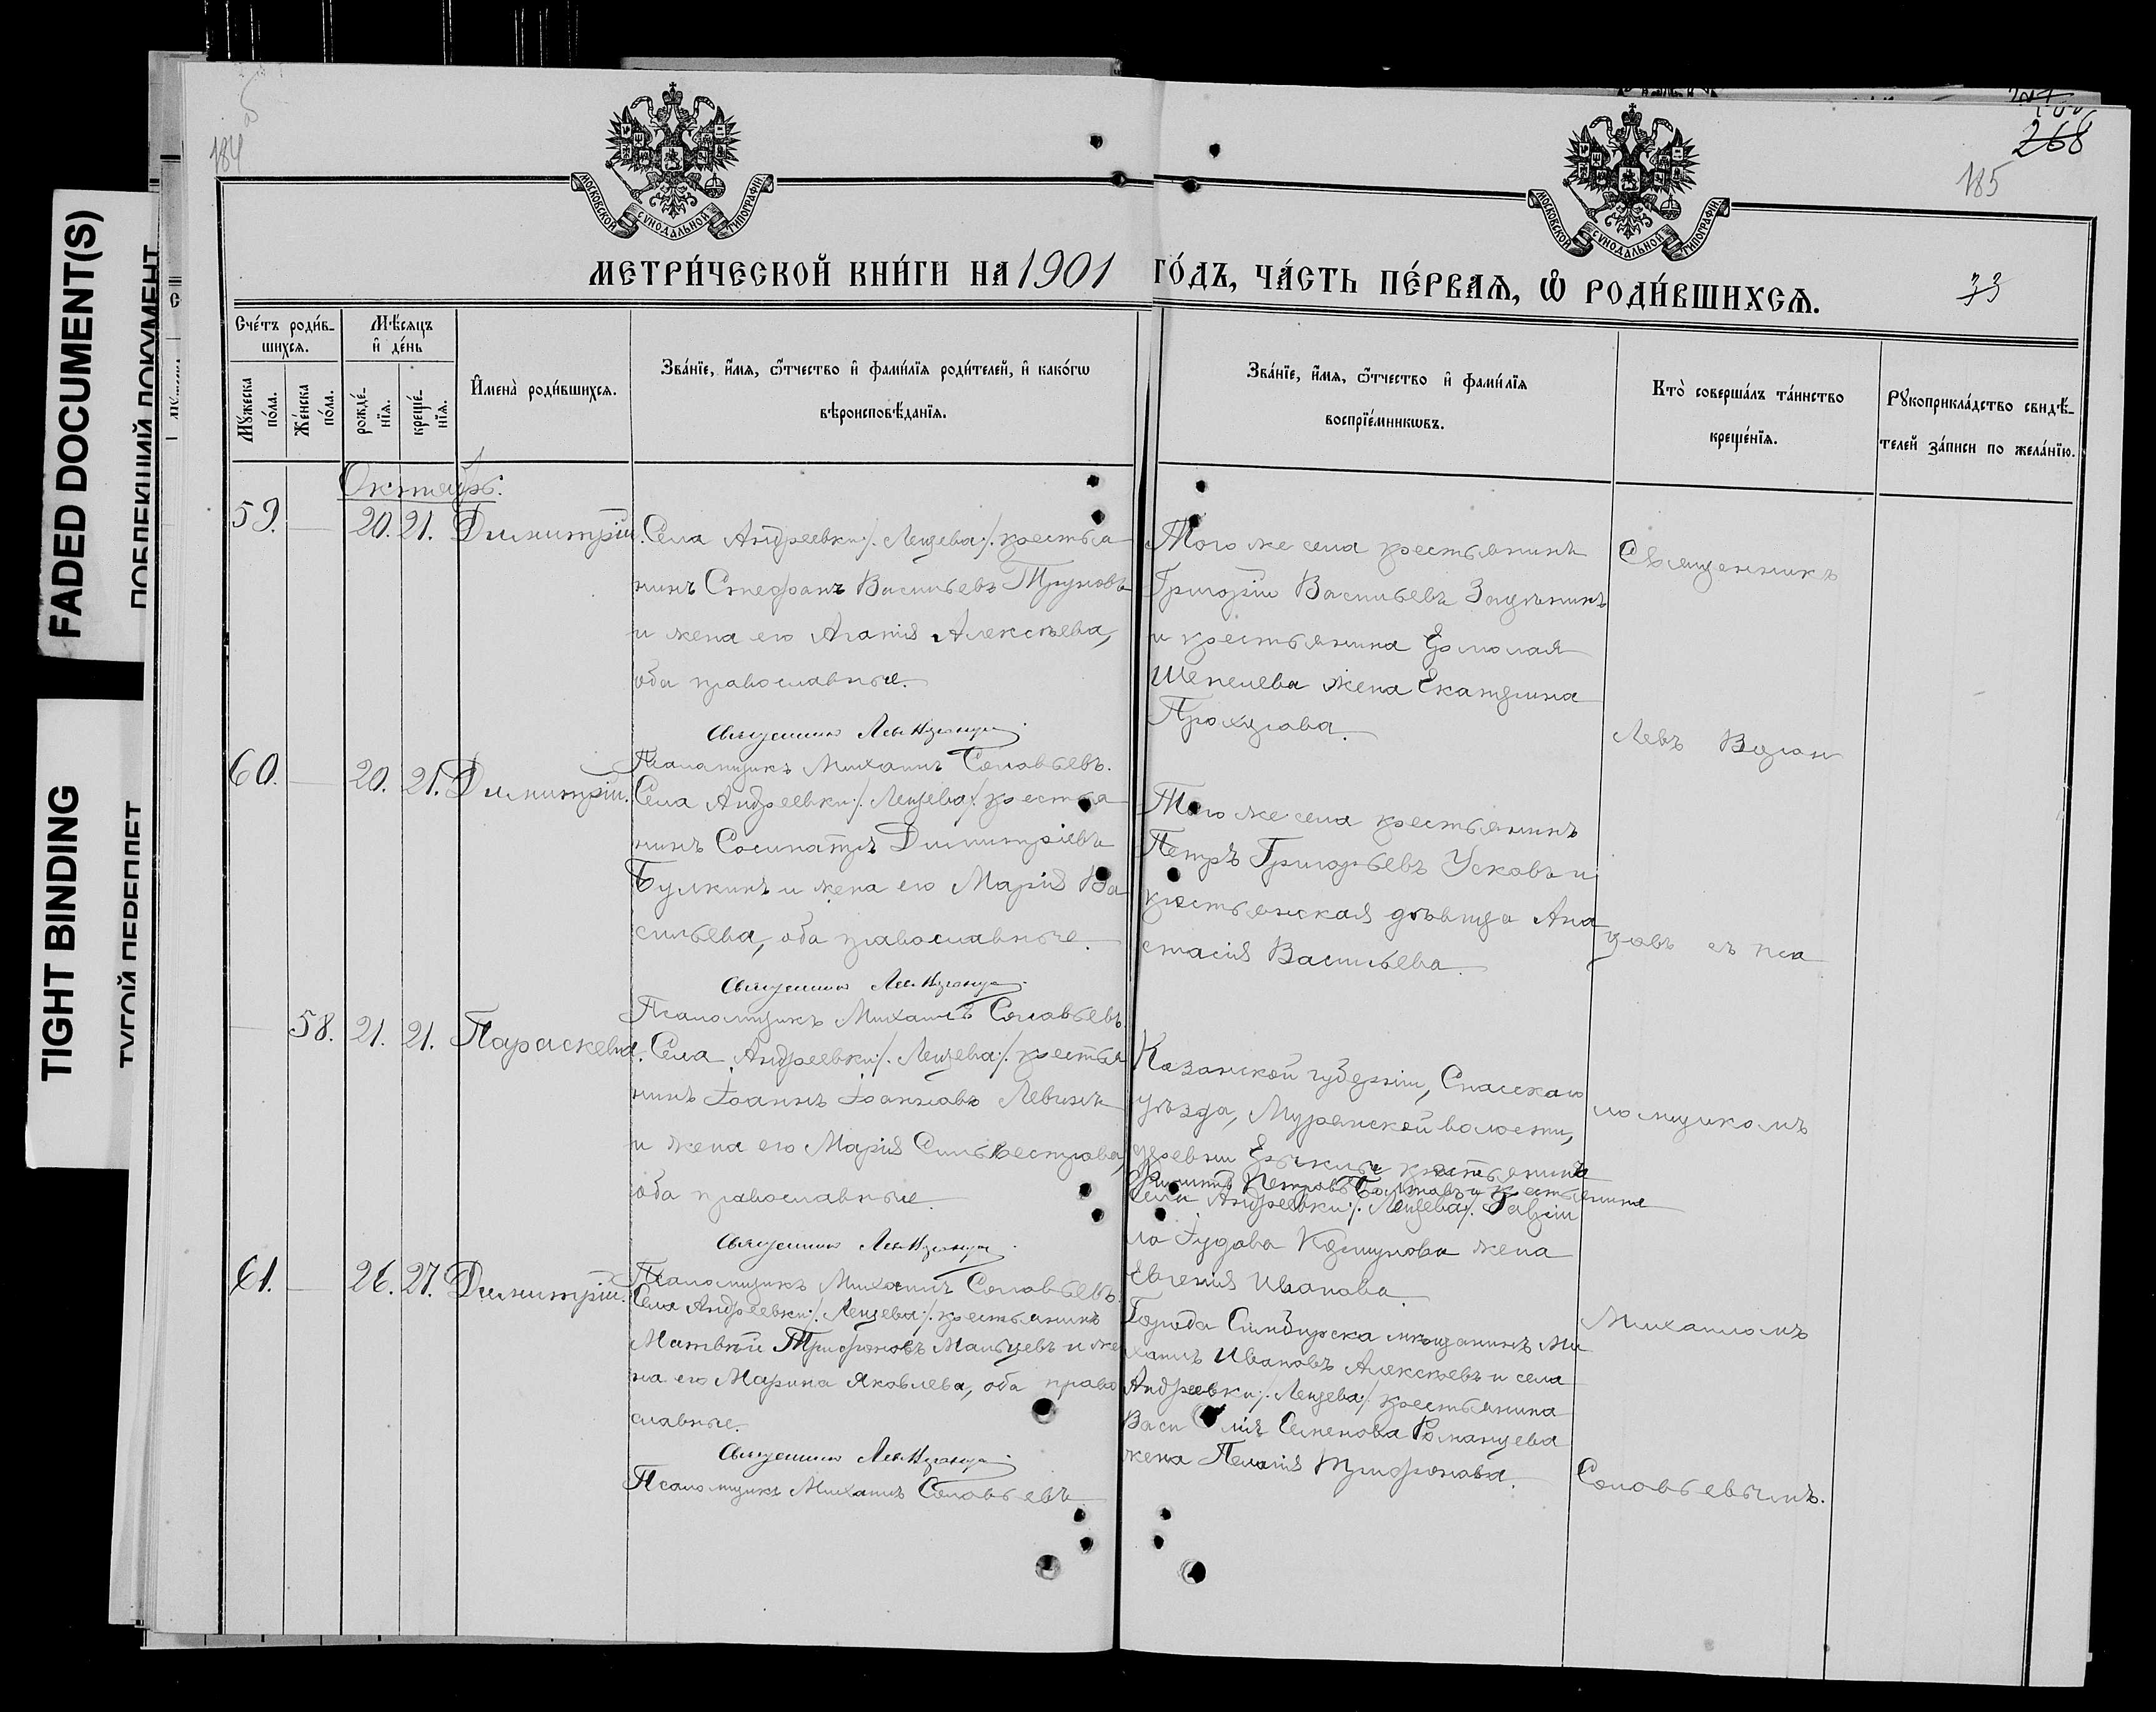 FADED DOCUMENT(S)
TIGHT BINDING
184
268
185
33
МОСКОВСКОЙ СУНОДАЛЬНОЙ ТИПОГРАФИИ
МОСКОВСКОЙ СУНОДАЛЬНОЙ ТИПОГРАФИИ
МЕТРИ́ЧЕСКОЙ КНИ́ГИ НА 1901 ГО́ДЪ, ЧА́СТЬ ПЕ́РВАЯ, Ѡ РОДИ́ВШИХСЯ.
Сче́тъ роди́в-
шихся.
Мѣ́сяцъ
и де́нь
Му́жеска
по́ла.
Же́нска
по́ла.
рожде́-
нїя.
креще́-
нїя.
Имена̀ роди́вшихся.
Зва́нїе, и́мя, ѻ҆́тчество и фами́лїя роди́телей, и како́гѡ
вѣроисповѣ́данїя.
Зва́нїе, и́мя, ѻ҆́тчество и фами́лїя
воспрїе́мникѡвъ.
Кто̀ соверша́лъ та́инство
креще́нїя.
Рукоприкла́дство свидѣ́-
телей за́писи по жела́нїю.
Октябрь.
59. — 20. 21. Димитрій.
Села Андреевки /. Лещева ./. крестья
нинъ Стефанъ Васильевъ Труновъ
и жена его Агапія Алексѣева,
оба православные.
Священникъ Левъ
Псаломщикъ Михаилъ Соловьевъ.
Того же села крестьянинъ
Григорій Васильевъ
и крестьянина Ермолая
Шепелева жена Екатерина
Прохорова.
60. — 20. 21. Димитрій.
Села Андреевки /. Лещева ./. крестья
нинъ Сосипатръ Димитріевъ
Булкинъ и жена его Марія Ва
сильева, оба православные.
Священникъ Левъ
Псаломщикъ Михаилъ Соловьевъ.
Того же села крестьянинъ
Петръ Григорьевъ Усковъ и
крестьянская дѣвица Ана
стасія Васильева.
— 58. 21. 21. Параскева.
Села Андреевки /. Лещева ./. крестья
нинъ Іоаннъ Іоанновъ Левинъ
и жена его Марія Сильвестрова,
оба православные.
Священникъ Левъ
Псаломщикъ Михаилъ Соловьевъ.
Казанской губерніи, Спасскаго
уѣзда, волости,
деревни крестьянинъ
Петровъ и крестьянина
села Андреевки /. Лещева ./. Гавріи
ла жена
Евгенія Иванова.
61. — 26. 27. Димитрій.
Села Андреевки /. Лещева ./. крестьянинъ
Матвѣй Трифоновъ Мальцевъ и же
на его Марина Яковлева, оба право
славные.
Священникъ Левъ
Псаломщикъ Михаилъ Соловьевъ.
Города Симбирска мѣщанинъ Ми
хаилъ Ивановъ Алексѣевъ и села
Андреевки /. Лещева ./. крестьянина
Василія Семенова Романцева
жена Пелагія Трифонова.
Священникъ
Левъ
съ пса
ломщикомъ
Михаиломъ
Соловьевымъ.